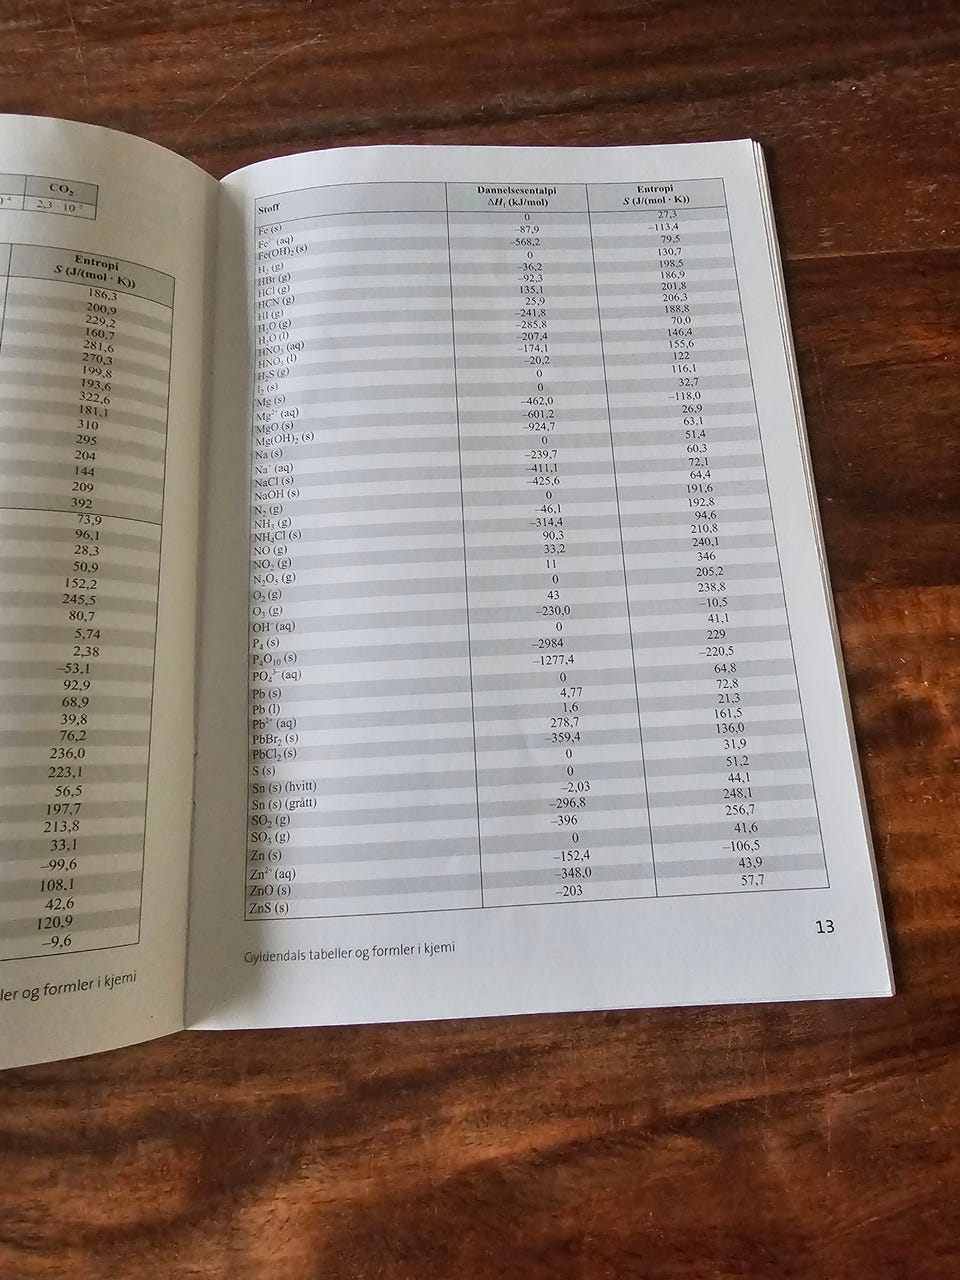 CO₂
2,3 · 10⁻³
Entropi
S (J/(mol · K))
186,3
200,9
229,2
160,7
281,6
270,3
199,8
193,6
322,6
181,1
310
295
204
144
209
392
73,9
96,1
28,3
50,9
152,2
245,5
80,7
5,74
2,38
–53,1
92,9
68,9
39,8
76,2
236,0
223,1
56,5
197,7
213,8
33,1
–99,6
108,1
42,6
120,9
–9,6
ler og formler i kjemi
Stoff Dannelsesentalpi Entropi
ΔHf (kJ/mol) S (J/(mol · K))
Fe (s) 0 27,3
Fe²⁺ (aq) –87,9 –113,4
Fe(OH)₂ (s) –568,2 79,5
H₂ (g) 0 130,7
HBr (g) –36,2 198,5
HCl (g) –92,3 186,9
HCN (g) 135,1 201,8
HI (g) 25,9 206,3
H₂O (g) –241,8 188,8
H₂O (l) –285,8 70,0
HNO₃ (aq) –207,4 146,4
HNO₃ (l) –174,1 155,6
H₂S (g) –20,2 122
I₂ (s) 0 116,1
Mg (s) 0 32,7
Mg²⁺ (aq) –462,0 –118,0
MgO (s) –601,2 26,9
Mg(OH)₂ (s) –924,7 63,1
Na (s) 0 51,4
Na⁺ (aq) –239,7 60,3
NaCl (s) –411,1 72,1
NaOH (s) –425,6 64,4
N₂ (g) 0 191,6
NH₃ (g) –46,1 192,8
NH₄Cl (s) –314,4 94,6
NO (g) 90,3 210,8
NO₂ (g) 33,2 240,1
N₂O₅ (g) 11 346
O₂ (g) 0 205,2
O₃ (g) 43 238,8
OH⁻ (aq) –230,0 –10,5
P₄ (s) 0 41,1
P₄O₁₀ (s) –2984 229
PO₄³⁻ (aq) –1277,4 –220,5
Pb (s) 0 64,8
Pb (l) 4,77 72,8
Pb²⁺ (aq) 1,6 21,3
PbBr₂ (s) 278,7 161,5
PbCl₂ (s) –359,4 136,0
S (s) 0 31,9
Sn (s) (hvitt) 0 51,2
Sn (s) (grått) –2,03 44,1
SO₂ (g) –296,8 248,1
SO₃ (g) –396 256,7
Zn (s) 0 41,6
Zn²⁺ (aq) –152,4 –106,5
ZnO (s) –348,0 43,9
ZnS (s) –203 57,7
Gyldendals tabeller og formler i kjemi
13